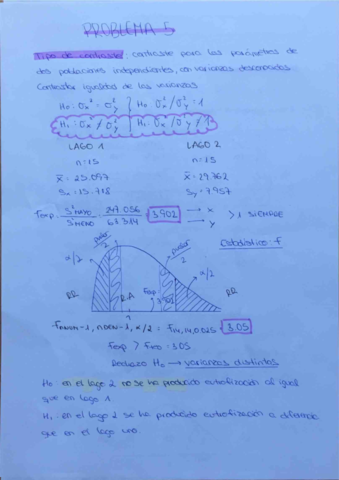 PROBLEMA 5
Tipo de contraste: contraste para los parámetros de
dos poblaciones independientes, con varianzas desconocidas
Contrastar igualdad de las varianzas
H₀: σx² = σy² | H₀ σx²/σy² = 1
H₁: σx² ≠ σy² | H₁ σx²/σy² ≠ 1
LAGO 1 LAGO 2
n=15 n=15
x̄ = 25.097 x̄ = 29.762
Sx = 15.718 Sy = 7.957
Fexp S²MAYO = 247.056 = 3.902 → x > 1 SIEMPRE
S²MENO 63.314 → y
Estadístico: F
pvalor/2 pvalor/2
α/2 α/2
RR RA Fexp 3.902 RR
FnNUM-1, nDEN-1, α/2 = F14,14,0.025 = 3.05
Fexp > Fteo = 3.05
Rechazo H₀ → varianzas distintas
H₀ en el lago 2 no se ha producido eutrofización al igual
que en lago 1
H₁: en el lago 2 se ha producido eutrofización a diferencia
que en el lago uno.